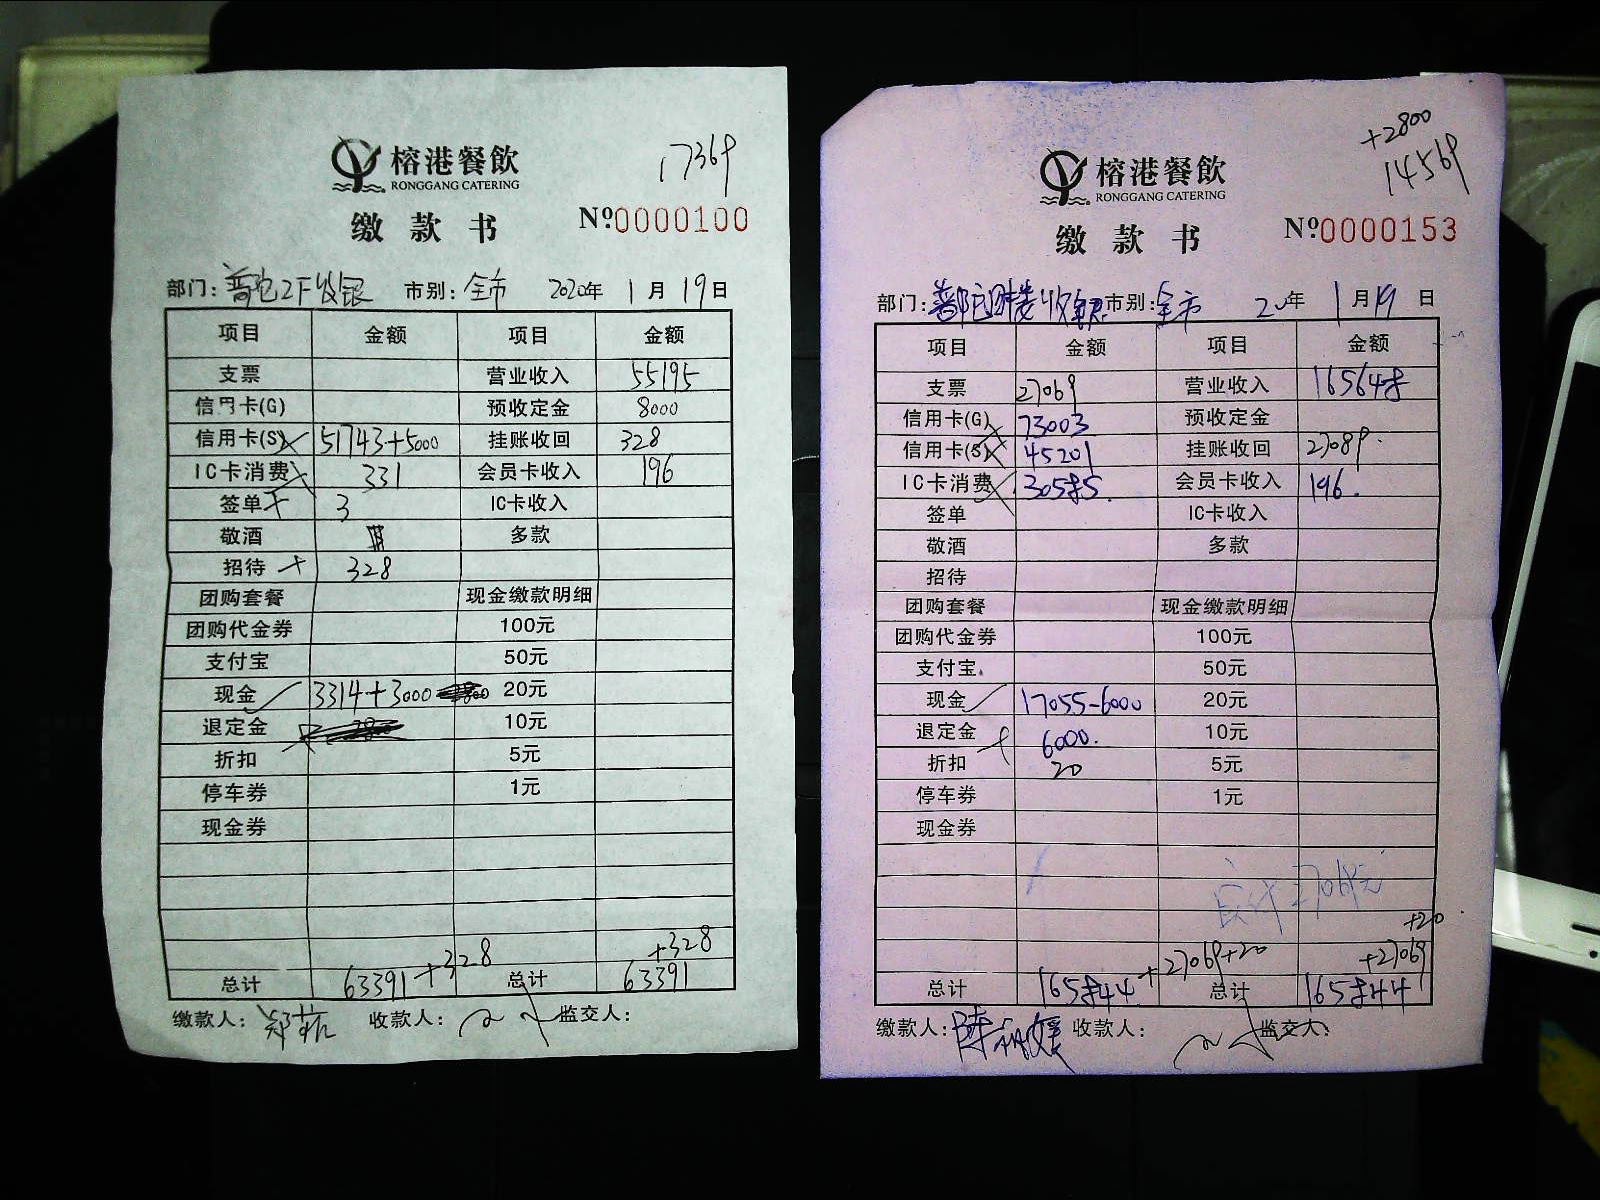 17369
榕港餐飲
RONGGANG CATERING
缴款书 №0000100
部门: 普包2F收银 市别: 全市 2020年 1月19日
项目 金额 项目 金额
支票 营业收入 55195
信用卡(G) 预收定金 8000
信用卡(S) 51743+5000 挂账收回 328
IC卡消费 331 会员卡收入 196
签单 3 IC卡收入
敬酒 多款
招待 328
团购套餐 现金缴款明细
团购代金券 100元
支付宝 50元
现金 3314+3000 20元
退定金 10元
折扣 5元
停车券 1元
现金券
+328 +328
总计 63391 总计 63391
缴款人: 郑 收款人: 监交人:
+2800
14569
榕港餐飲
RONGGANG CATERING
缴款书 №0000153
部门: 收银 市别: 全市 20年 1月19日
项目 金额 项目 金额
支票 27069 营业收入 165648
信用卡(G) 73003 预收定金
信用卡(S) 45201 挂账收回 27089
IC卡消费 30585 会员卡收入 196
签单 IC卡收入
敬酒 多款
招待
团购套餐 现金缴款明细
团购代金券 100元
支付宝 50元
现金 17055-6000 20元
退定金 6000 10元
折扣 20 5元
停车券 1元
现金券
+20
+27069+20 +27069
总计 165844 总计 165844
缴款人: 陈 媛 收款人: 监交人: